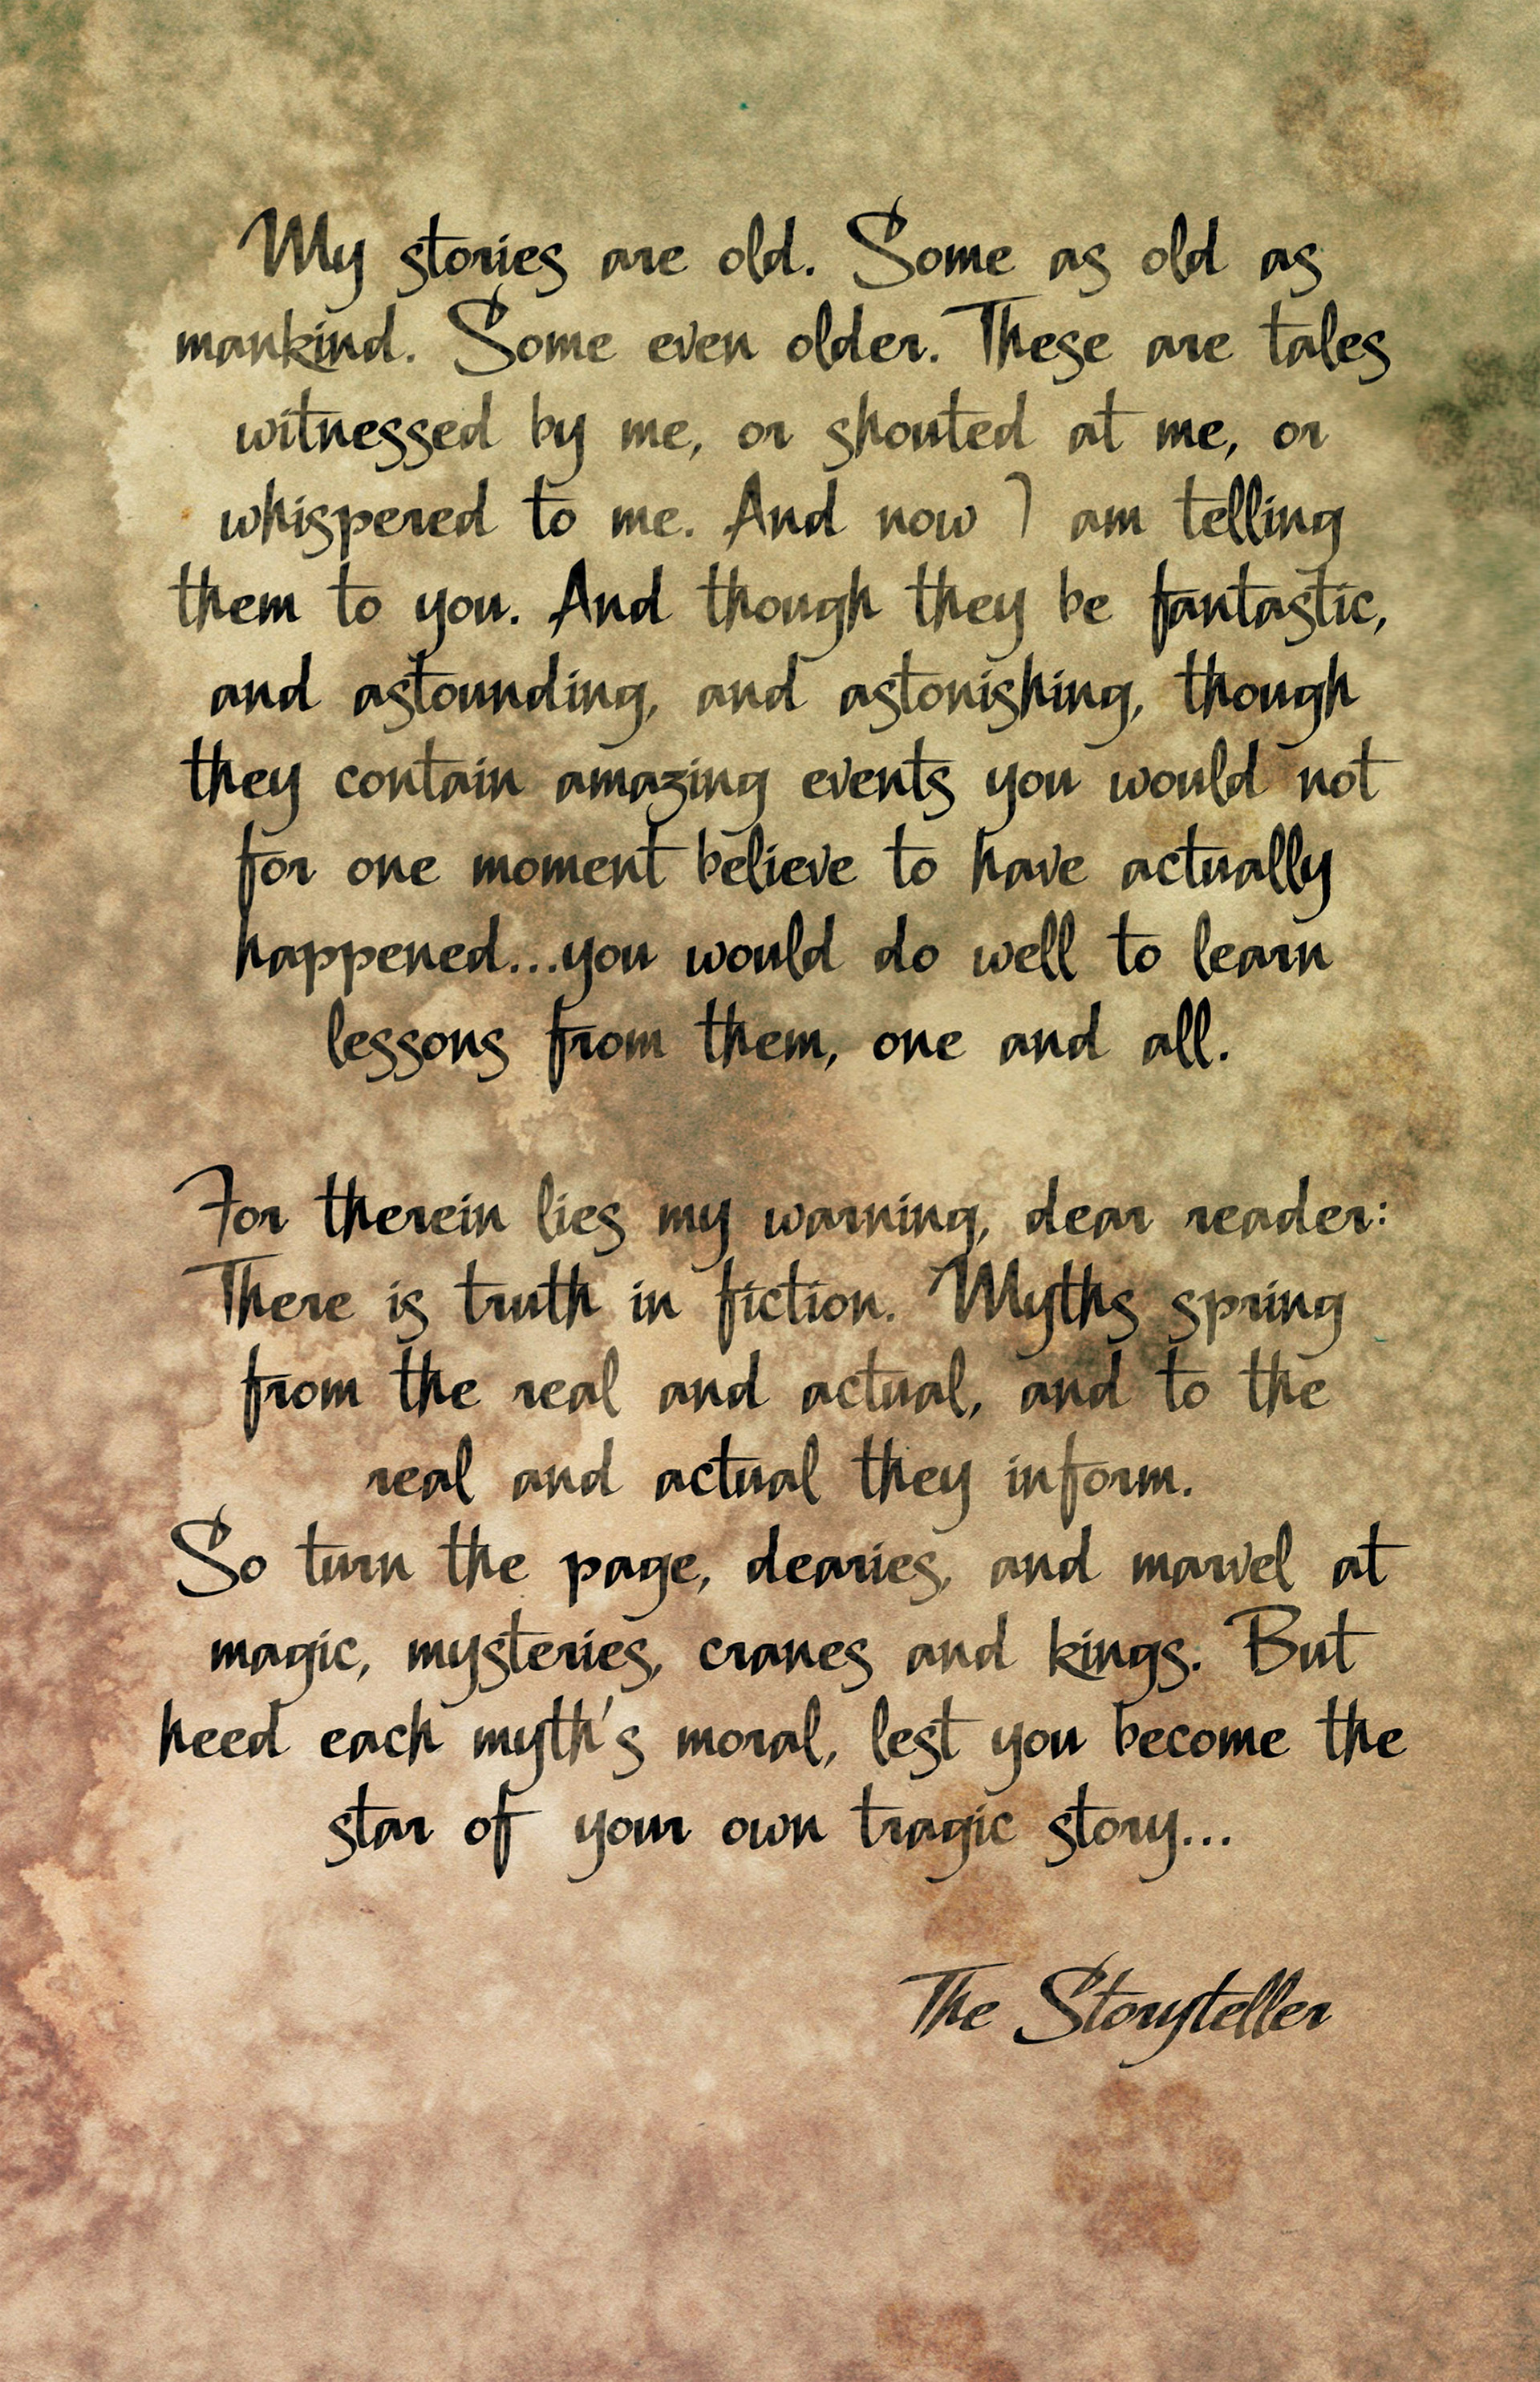 My stories are old. Some as old as
mankind. Some even older. These are tales
witnessed by me, or shouted at me, or
whispered to me. And now I am telling
them to you. And though they be fantastic,
and astounding, and astonishing, though
they contain amazing events you would not
for one moment believe to have actually
happened...you would do well to learn
lessons from them, one and all.
For therein lies my warning, dear reader:
There is truth in fiction. Myths spring
from the real and actual, and to the
real and actual they inform.
So turn the page, dearies, and marvel at
magic, mysteries, cranes and kings. But
heed each myth's moral, lest you become the
star of your own tragic story...
The Storyteller